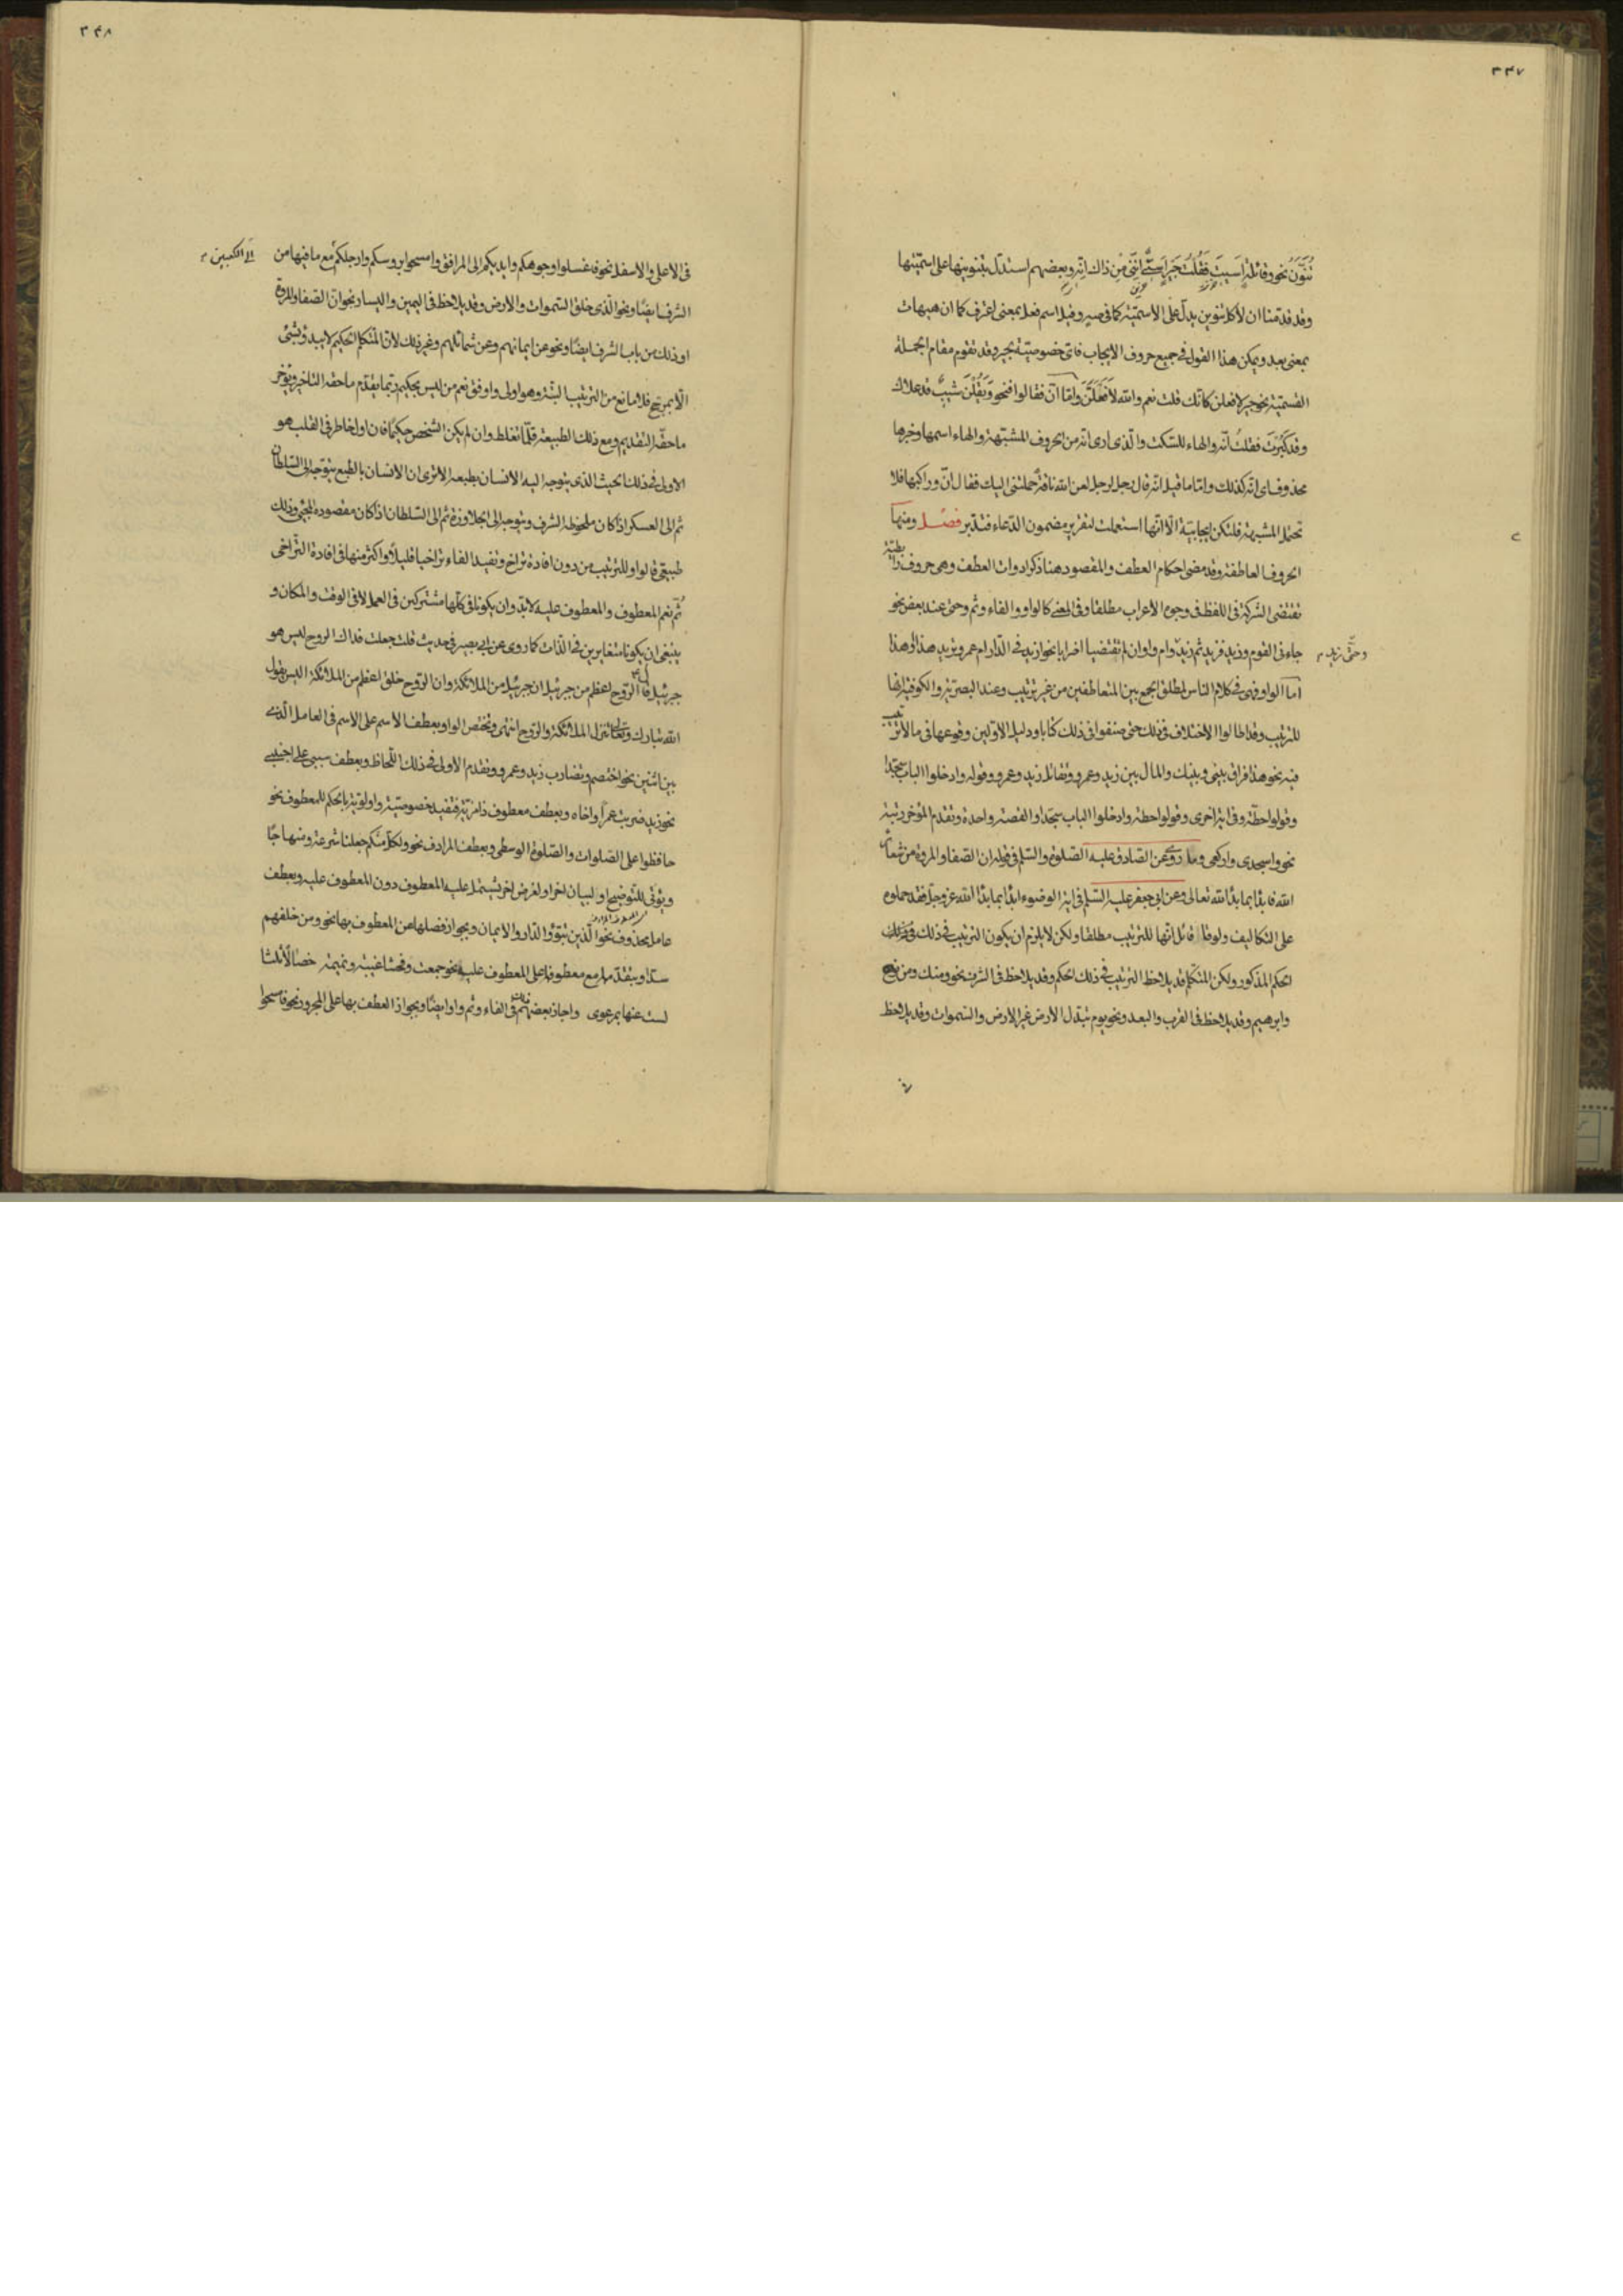 ٣٤٧
تنون نحو وقائلة اسيت فقلت جير اسى اننى من ذاك انه وبعضهم استدل بتنوينها على اسميتها
وقد قدمنا ان لا كل تنوين يدل على الاسمية كما فى صه وقيل اسم فعل بمعنى اعترف كما ان هيهات
بمعنى بعد ويمكن هذا القول فى جميع حروف الايجاب فاى خصوصية بجير وقد تقوم مقام الجملة
القسمية نحو جير لافعلن كانك قلت نعم والله لافعلن واما ان فقالوا فنحو ويقلن شيب قد علاك
وقد كبرت فقلت انه والهاء للسكت والذى ارى انه من الحروف المشبهة والهاء اسمها وخبرها
محذوف اى انه كذلك واما ما قيل انه قال رجل لرجل لعن الله ناقة حملتنى اليك فقال ان وراكبها فلا
تحتمل المشبهة فلتكن ايجابية الا انها استعملت لتقرير مضمون الدعاء فتدبر فصل ومنها
الحروف العاطفة وقد مضى احكام العطف والمقصود هنا ذكر ادوات العطف وهى حروف رابطية
تقتضى الشركة فى اللفظ فى وجوه الاعراب مطلقا وفى المعنى كالواو والفاء وثم وحتى عند بعض نحو
جاءنى القوم وزيد فزيد ثم زيد وام واو ان لم تقتضيا اضرابا نحو ازيد فى الدار ام عمرو يزيد هذا او هذا
وحتى زيد
اما الواو فهى فى كلام الناس لمطلق الجمع بين المتعاطفين من غير ترتيب وعند البصرية والكوفية انها
للترتيب وقد اطالوا الاختلاف فى ذلك حتى صنفوا فى ذلك كتابا ودليل الاولين وقوعها فى ما لا ترتيب
فيه نحو هذا فراق بينى وبينك والمال بين زيد وعمرو وتقاتل زيد وعمرو وقوله وادخلوا الباب سجدا
وقولوا حطة وفى اية اخرى وقولوا حطة وادخلوا الباب سجدا والقصة واحدة وتقدم المؤخر رتبة
نحو واسجدى واركعى وما روى عن الصادق عليه الصلوة والسلم فى قوله ان الصفا والمروة من شعائر
الله فابدأ بما بدأ الله تعالى وعن ابى جعفر عليه السلم فى اية الوضوء ابدأ بما بدأ الله عز وجل فقد حملوه
على التكاليف ولو قائل انها للترتيب مطلقا ولكن لا يلزم ان يكون الترتيب فى ذلك
الحكم المذكور ولكن المتكلم قد يلاحظ الترتيب فى ذلك الحكم وقد يلاحظ فى الشرف نحو ومنك ومن نوح
وابرهيم وقد يلاحظ فى القرب والبعد ونحو يوم تبدل الارض غير الارض والسموات وقد يلاحظ
٣٤٨
فى الاعلى والاسفل نحو فاغسلوا وجوهكم وايديكم الى المرافق وامسحوا برؤسكم وارجلكم مع ما فيها من
الى الكعبين
الشرف ايضا ونحو الذى خلق السموات والارض وقد يلاحظ فى اليمين واليسار نحو ان الصفا والمروة
او ذلك من باب الشرف ايضا ونحو عن ايمانهم وعن شمائلهم وغير ذلك لان المتكلم الحكيم لا يبدؤ بشئ
الا بمرجح فلا مانع من الترتيب البتة وهو اولى واوفق نعم من ليس بحكيم ربما يقدم ما حقه التاخير ويؤخر
ما حقه التقديم ومع ذلك الطبيعة قلما تغلط وان لم يكن الشخص حكيما فان اول خاطر فى القلب هو
الاولى فى ذلك بحيث الذى يتوجه اليه الانسان بطبعه الا ترى ان الانسان بالطبع يتوجه الى السلطان
ثم الى العسكر اذا كان ملحوظه الشرف ويتوجه الى الجلاوزة ثم الى السلطان اذا كان مقصوده المجئ وذلك
طبيعى فالواو للترتيب من دون افادة تراخ وتفيد الفاء تراخيا قليلا واكثر منها فى افادة التراخى
ثم نعم المعطوف والمعطوف عليه لابد وان يكونا فى كلها مشتركين فى العمل لا فى الوقت والمكان و
ينبغى ان يكونا متغايرين فى الذات كما روى عن ابى بصير فى حديث قلت جعلت فداك الروح ليس هو
جبرئيل قال الروح اعظم من جبرئيل ان جبرئيل من الملائكة وان الروح خلق اعظم من الملائكة اليس يقول
الله تبارك وتعالى تنزل الملائكة والروح انتهى وتختص الواو بعطف الاسم على الاسم فى العامل الذى
بين اثنين نحو اختصم وتضارب زيد وعمرو وتقدم الاولى فى ذلك اللحاظ وبعطف سببى على اجنبى
نحو زيد ضربت عمرا واخاه وبعطف معطوف ذا مزية فتفيد خصوصيته واولويته بالحكم للمعطوف نحو
حافظوا على الصلوات والصلوة الوسطى وبعطف المرادف نحو ولكل منكم جعلنا شرعة ومنهاجا
ويؤتى للتوضيح والبيان اخرا ولغرض اخر يشتمل عليه المعطوف دون المعطوف عليه وبعطف
عامل محذوف نحو الذين تبوؤا الدار والايمان وبجواز فصلها عن المعطوف بها نحو ومن خلفهم
سدا وبتقدمها مع معطوفها على المعطوف عليه نحو جمعت وفحشا غيبة ونميمة خصالا ثلثا
لست عنها بمرعوى واجاز بعضهم ذلك فى الفاء وثم واو ايضا وبجواز العطف بها على المجرور نحو فامسحوا